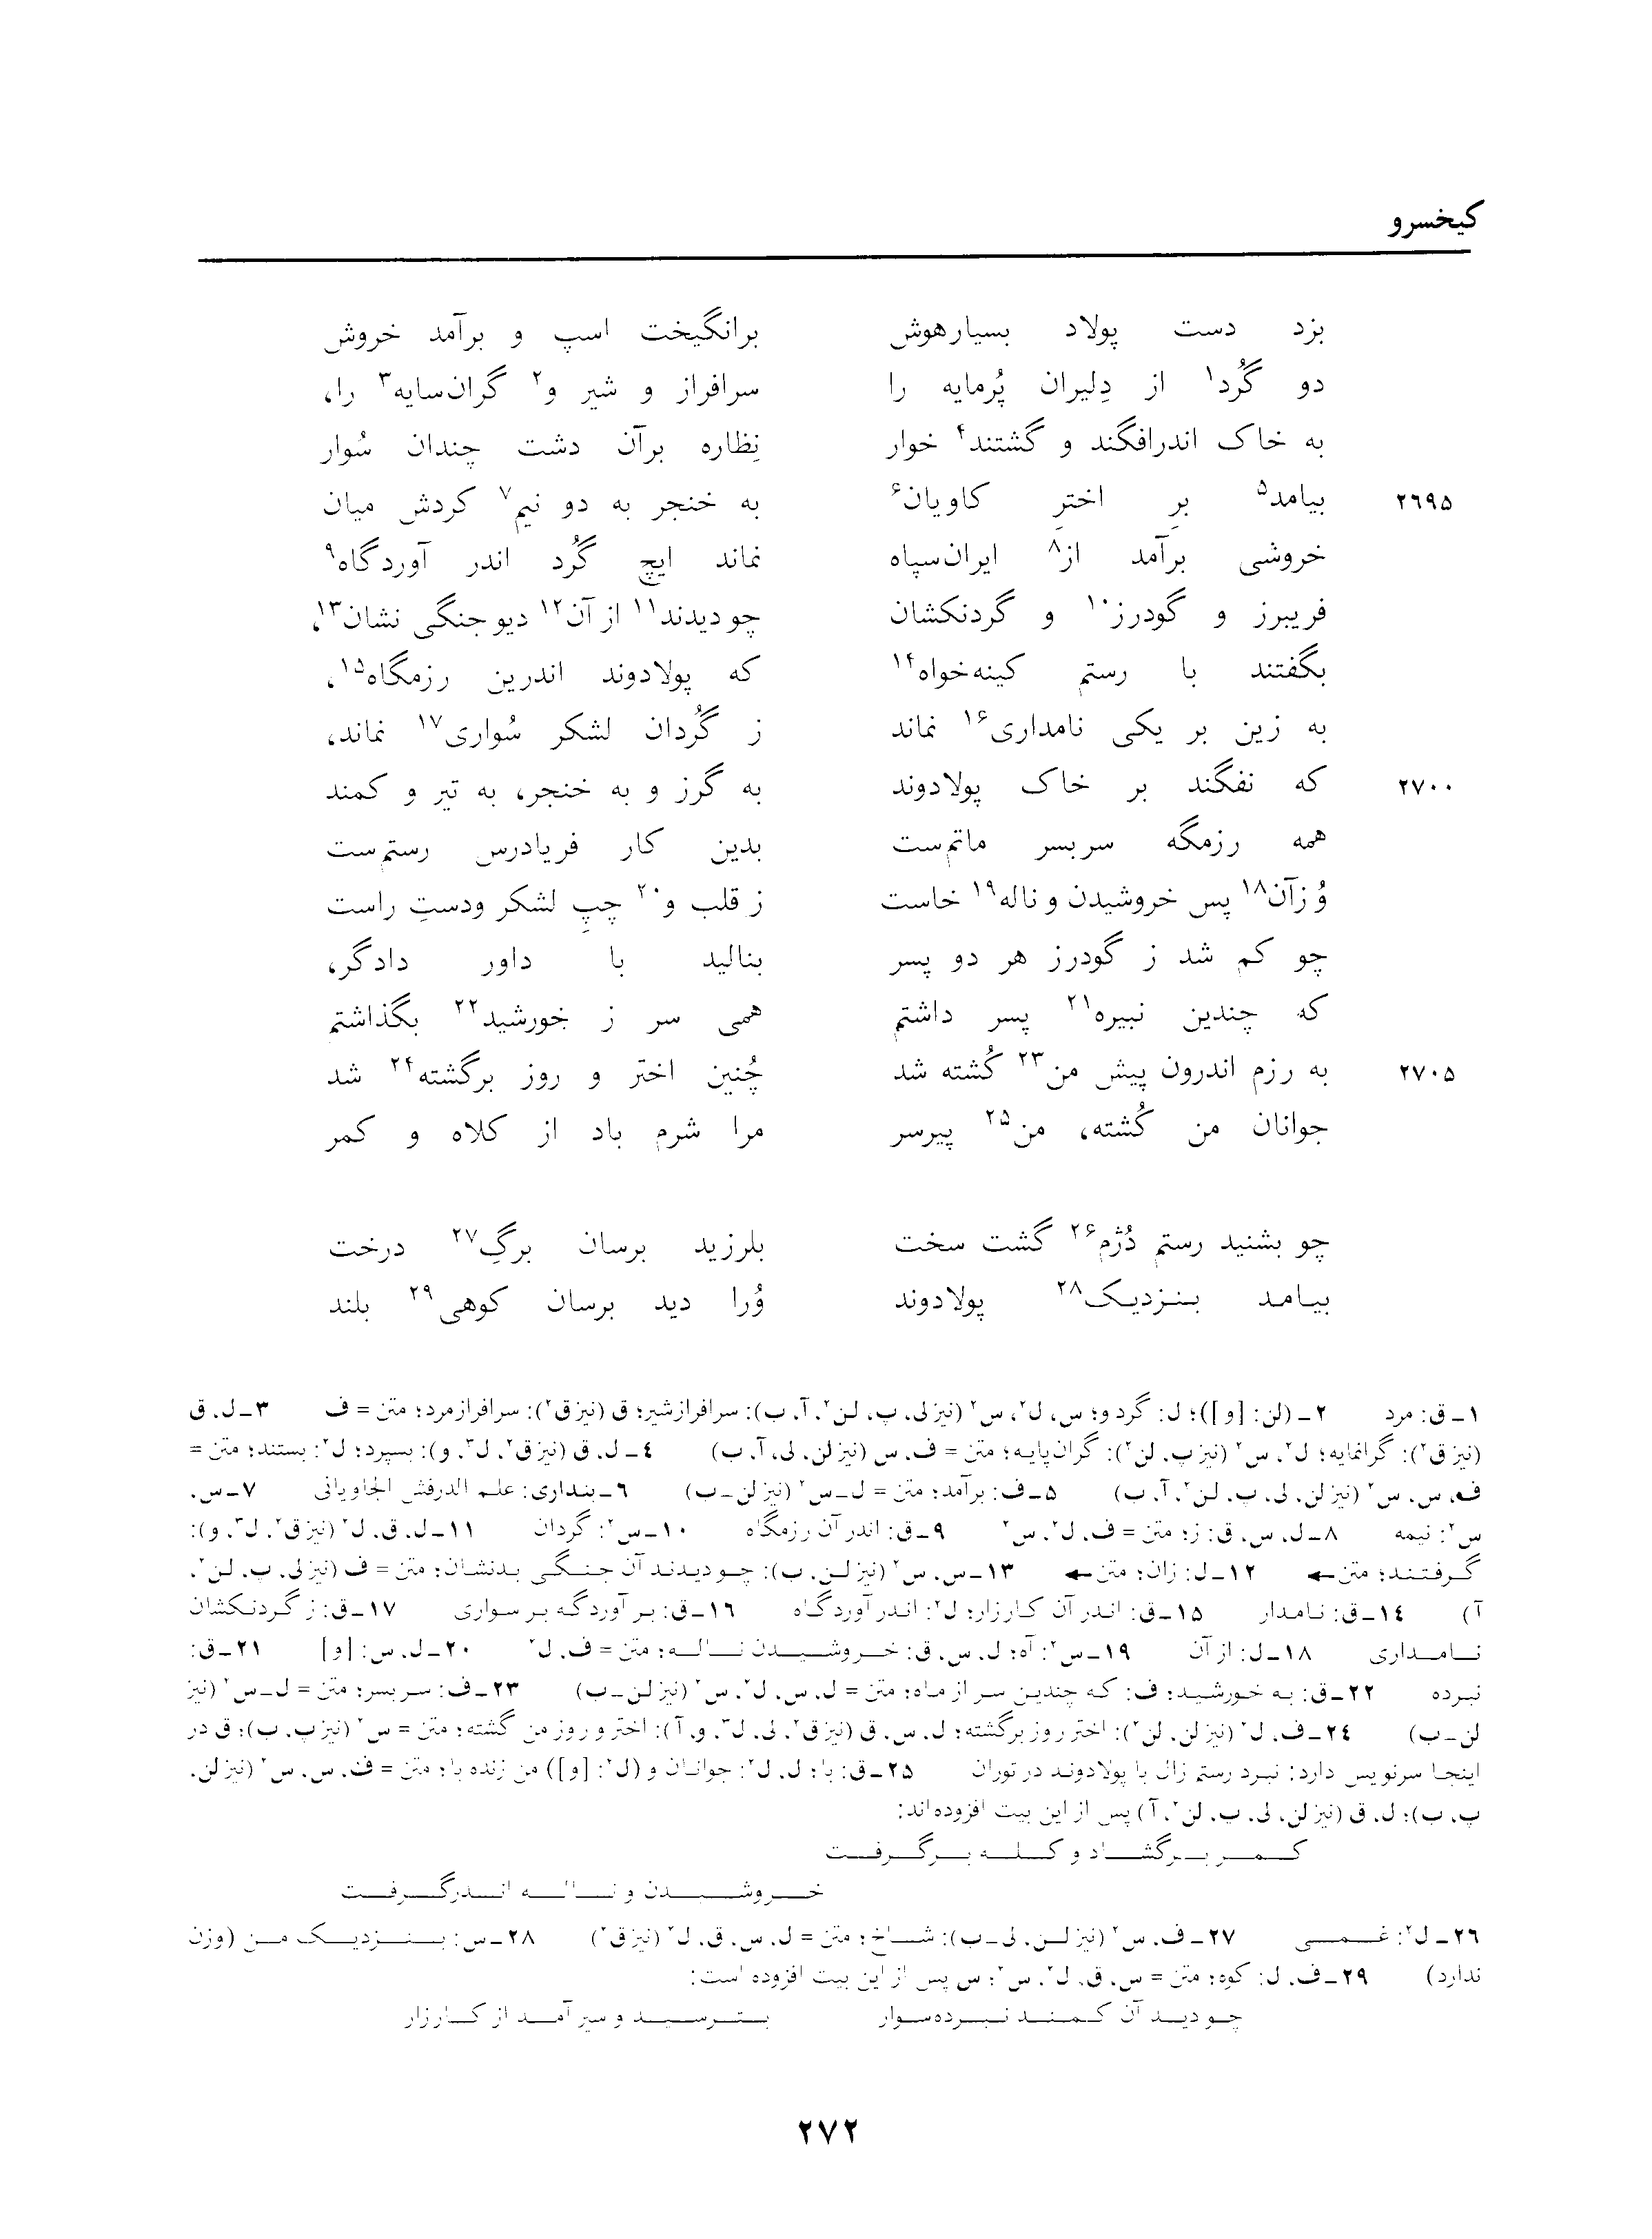 کیخسرو
بزد دست پولاد بسیارهوش برانگیخت اسپ و برآمد خروش
دو گُرد۱ از دِلیران پُرمایه را سرافراز و شیر و۲ گران‌سایه۳ را،
به خاک اندرافگند و گشتند۴ خوار نِظاره برآن دشت چندان سُوار
۲٦۹۵ بیامد۵ برِ اخترِ کاویان۶ به خنجر به دو نیم۷ کردش میان
خروشی برآمد از۸ ایران‌سپاه نماند ایچ گُرد اندر آوردگاه۹
فریبرز و گودرز۱۰ و گردنکشان چو دیدند۱۱ از آن۱۲ دیو جنگی نشان۱۳،
بگفتند با رستم کینه‌خواه۱۴ که پولادوند اندرین رزمگاه۱۵،
به زین بر یکی نامداری۱۶ نماند ز گُردان لشکر سُواری۱۷ نماند،
۲۷۰۰ که نفگند بر خاک پولادوند به گرز و به خنجر، به تیر و کمند
همه رزمگه سربسر ماتم‌ست بدین کار فریادرس رستم‌ست
وُ زآن۱۸ پس خروشیدن و ناله۱۹ خاست ز قلب و۲۰ چپِ لشکر ودستِ راست
چو کم شد ز گودرز هر دو پسر بنالید با داور دادگر،
که چندین نبیره۲۱ پسر داشتم همی سر ز خورشید۲۲ بگذاشتم
۲۷۰۵ به رزم اندرون پیش من۲۳ کُشته شد چُنین اختر و روز برگشته۲۴ شد
جوانان من کُشته، من۲۵ پیرسر مرا شرم باد از کلاه و کمر
چو بشنید رستم دُژم۲۶ گشت سخت بلرزید برسان برگِ۲۷ درخت
بیامد بنزدیک۲۸ پولادوند وُرا دید برسان کوهی۲۹ بلند
۱ــ ق: مرد ۲ــ (لن: [و])؛ ل: گرد و؛ س، ل۲، س۲ (نیز لی، پ، لن۲، آ، ب): سرافراز شیر؛ ق (نیز ق۲): سرافراز مرد؛ متن = ف ۳ــ ل، ق
(نیز ق۲): گرانمایه؛ ل۲، س۲ (نیز پ، لن۲): گران‌پایه؛ متن = ف، س (نیز لن، لی، آ، ب) ٤ــ ل، ق (نیز ق۲، ل۳، و): بسپرد؛ ل۲: بستند؛ متن =
ف، س، س۲ (نیز لن، لی، پ، لن۲، آ، ب) ۵ــ ف: برآمد؛ متن = ل ــ س۲ (نیز لن ــ ب) ٦ــ بنداری: علم الدرفش الجاویانی ۷ــ س،
س۲: نیمه ۸ــ ل، س، ق: ز؛ متن = ف، ل۲، س۲ ۹ــ ق: اندر آن رزمگاه ۱۰ــ س۲: گردان ۱۱ــ ل، ق، ل۲ (نیز ق۲، ل۳، و):
گرفتند؛ متن← ۱۲ــ ل: زان؛ متن← ۱۳ــ س، س۲ (نیز لن، ب): چو دیدند آن جنگی بدنشان؛ متن = ف (نیز لی، پ، لن۲،
آ) ۱٤ــ ق: نامدار ۱۵ــ ق: اندر آن کارزار؛ ل۲: اندر آوردگاه ۱٦ــ ق: بر آوردگه بر سواری ۱۷ــ ق: ز گردنکشان
نامداری ۱۸ــ ل: از آن ۱۹ــ س۲: آه؛ ل، س، ق: خروشیدن ناله؛ متن = ف، ل۲ ۲۰ــ ل، س: [و] ۲۱ــ ق:
نبرده ۲۲ــ ق: به خورشید؛ ف: که چندین سر از ماه؛ متن = ل، س، ل۲، س۲ (نیز لن ــ ب) ۲۳ــ ف: سربسر؛ متن = ل ــ س۲ (نیز
لن ــ ب) ۲٤ــ ف، ل۲ (نیز لن، لن۲): اختر روز برگشته؛ ل، س، ق (نیز ق۲، لی، ل۳، و، آ): اختر و روز من گشته؛ متن = س۲ (نیز پ، ب)؛ ق در
اینجا سرنویس دارد: نبرد رستم زال با پولادوند در توران ۲۵ــ ق: با؛ ل، ل۲: جوانان و (ل۲: [و]) من زنده با؛ متن = ف، س، س۲ (نیز لن،
پ، ب)؛ ل، ق (نیز لن، لی، پ، لن۲، آ) پس از این بیت افزوده‌اند:
کمر برگشاد و کله برگرفت
خروشیدن و ناله اندرگرفت
۲٦ــ ل۲: غمی ۲۷ــ ف، س۲ (نیز لن، لی ــ ب): شاخ؛ متن = ل، س، ق، ل۲ (نیز ق۲) ۲۸ــ س: بنزدیک من (وزن
ندارد) ۲۹ــ ف، ل: کوه؛ متن = س، ق، ل۲، س۲؛ س پس از این بیت افزوده است:
چو دید آن کمند نبرده‌سوار بترسید و سیر آمد از کارزار
۲۷۲